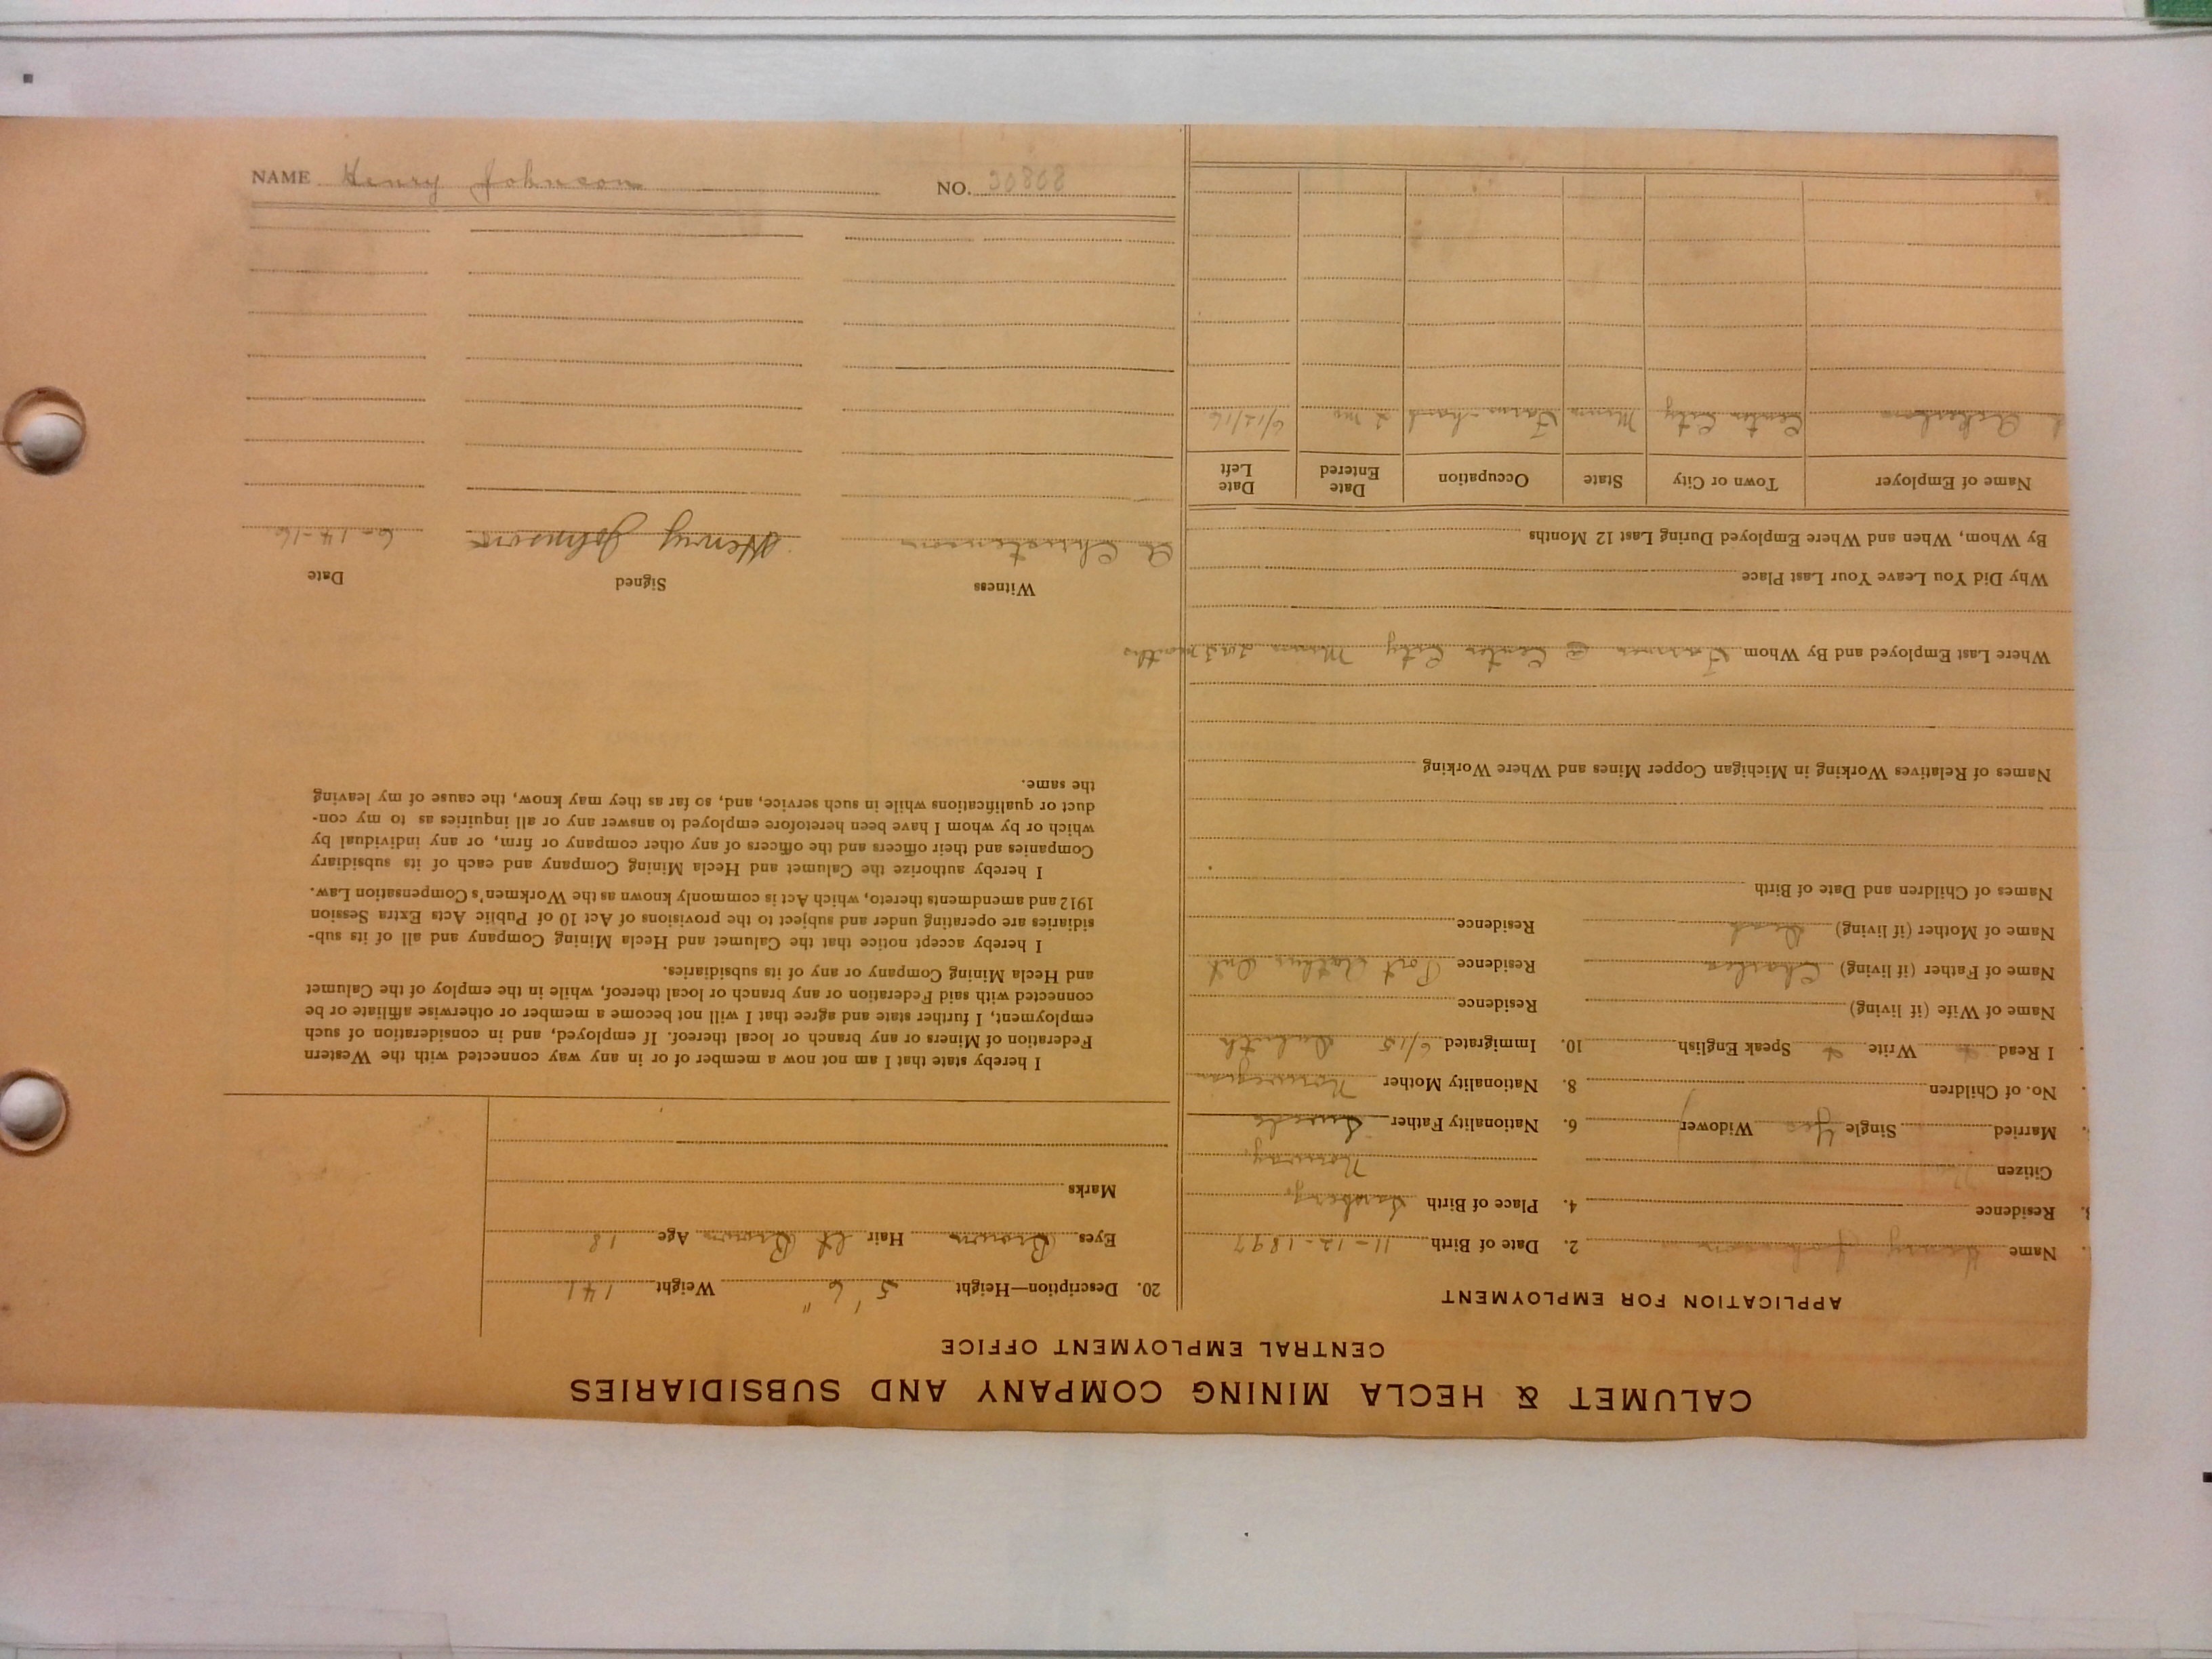 CALUMET & HECLA MINING COMPANY AND SUBSIDIARIES
CENTRAL EMPLOYMENT OFFICE
APPLICATION FOR EMPLOYMENT
Name Henry Johnson 2. Date of Birth 11-12-1897
Residence 4. Place of Birth
Citizen Norway
Married Single Yes Widower 6. Nationality Father Swede
No. of Children 8. Nationality Mother Norwegian
I Read Write Speak English 10. Immigrated 6/15 Duluth
Name of Wife (if living) Residence
Name of Father (if living) Charles Residence Port Arthur Ont
Name of Mother (if living) Dead Residence
Names of Children and Date of Birth
Names of Relatives Working in Michigan Copper Mines and Where Working
Where Last Employed and By Whom Farmer @ Center City Minn months
Why Did You Leave Your Last Place
By Whom, When and Where Employed During Last 12 Months
Name of Employer Town or City State Occupation Date Entered Date Left
Center City Minn Farm-hand 2 mo 6/12/16
20. Description—Height 5' 6" Weight 141
Eyes Brown Hair Lt Brown Age 18
Marks
I hereby state that I am not now a member of or in any way connected with the Western
Federation of Miners or any branch or local thereof. If employed, and in consideration of such
employment, I further state and agree that I will not become a member or otherwise affiliate or be
connected with said Federation or any branch or local thereof, while in the employ of the Calumet
and Hecla Mining Company or any of its subsidiaries.
I hereby accept notice that the Calumet and Hecla Mining Company and all of its sub-
sidiaries are operating under and subject to the provisions of Act 10 of Public Acts Extra Session
1912 and amendments thereto, which Act is commonly known as the Workmen's Compensation Law.
I hereby authorize the Calumet and Hecla Mining Company and each of its subsidiary
Companies and their officers and the officers of any other company or firm, or any individual by
which or by whom I have been heretofore employed to answer any or all inquiries as to my con-
duct or qualifications while in such service, and, so far as they may know, the cause of my leaving
the same.
Witness Signed Date
A Christenson Henry Johnson 6-14-16
NAME Henry Johnson NO. 30808